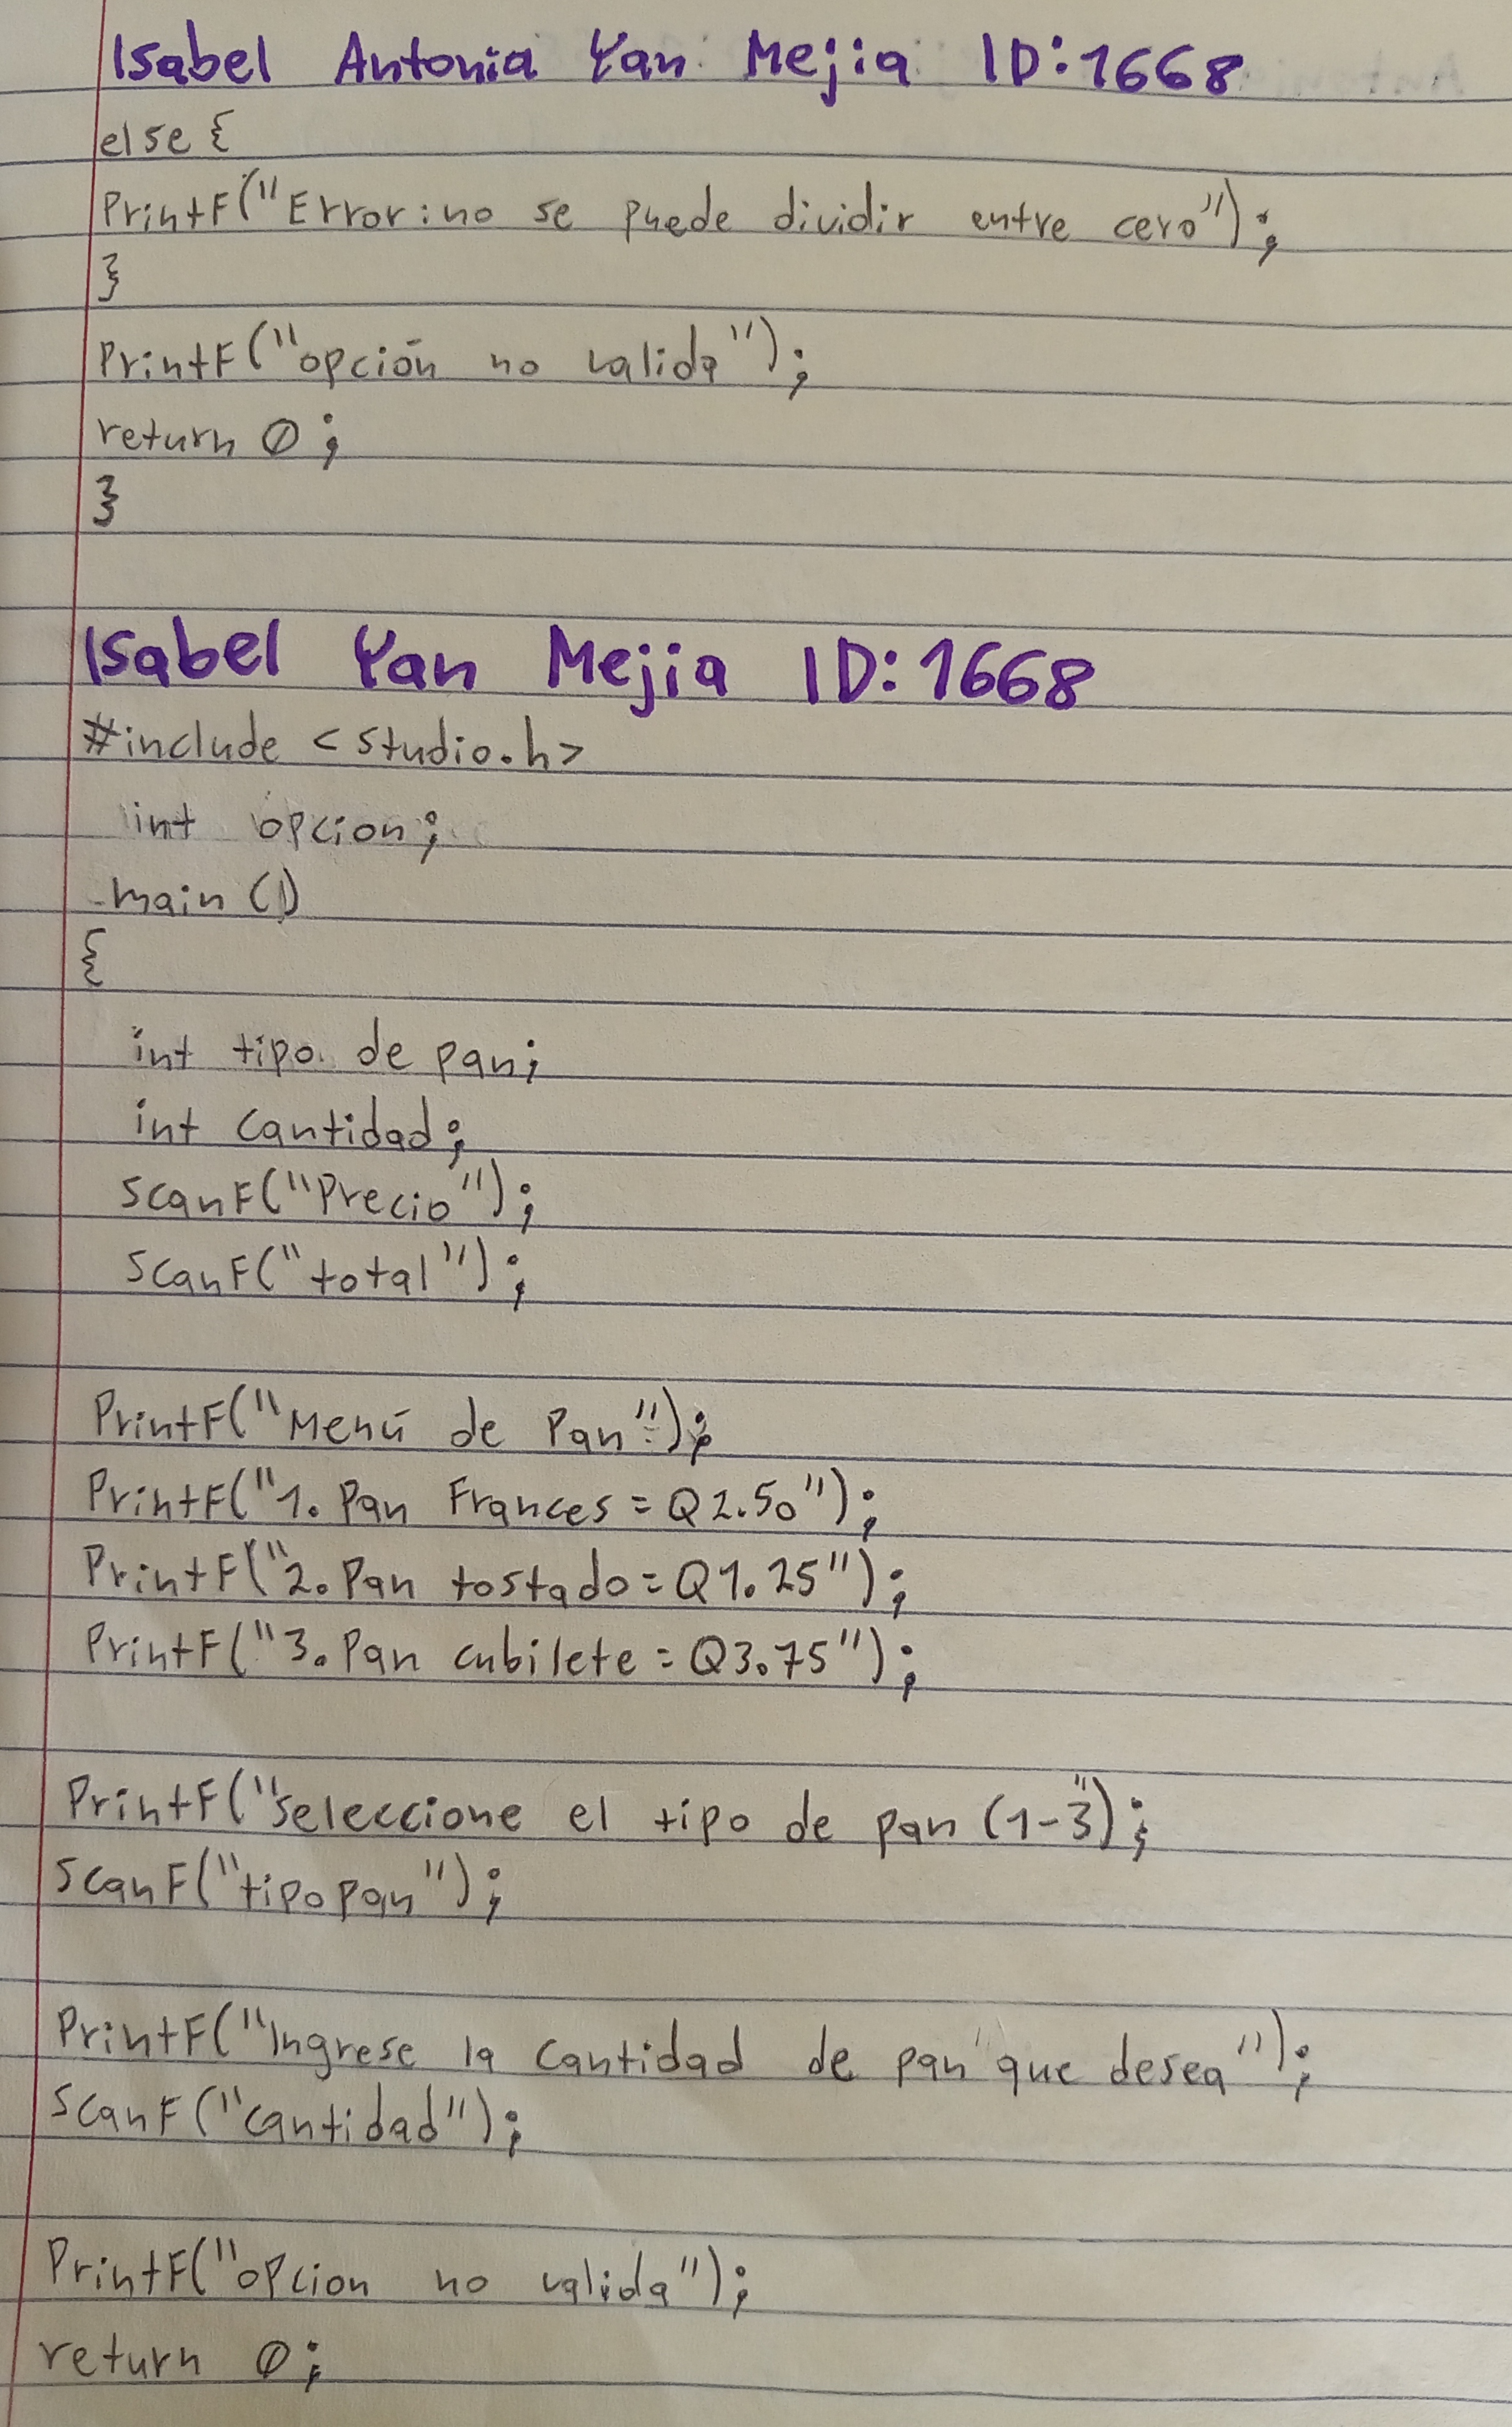 Isabel Antonia Yan Mejia ID:1668
else {
PrintF("Error:no se puede dividir entre cero");
}
PrintF("opción no valida");
return 0;
}
Isabel Yan Mejia ID:1668
#include <studio.h>
int opcion;
main ()
{
int tipo de pan;
int cantidad;
scanF("Precio");
scanF("total");
PrintF("Menú de Pan");
PrintF("1. Pan Frances = Q2.50");
PrintF("2. Pan tostado = Q1.25");
PrintF("3. Pan cubilete = Q3.75");
PrintF("Seleccione el tipo de pan (1-3");
scanF("tipopan");
PrintF("Ingrese la cantidad de pan que desea");
scanF("cantidad");
PrintF("opcion no valida");
return 0;